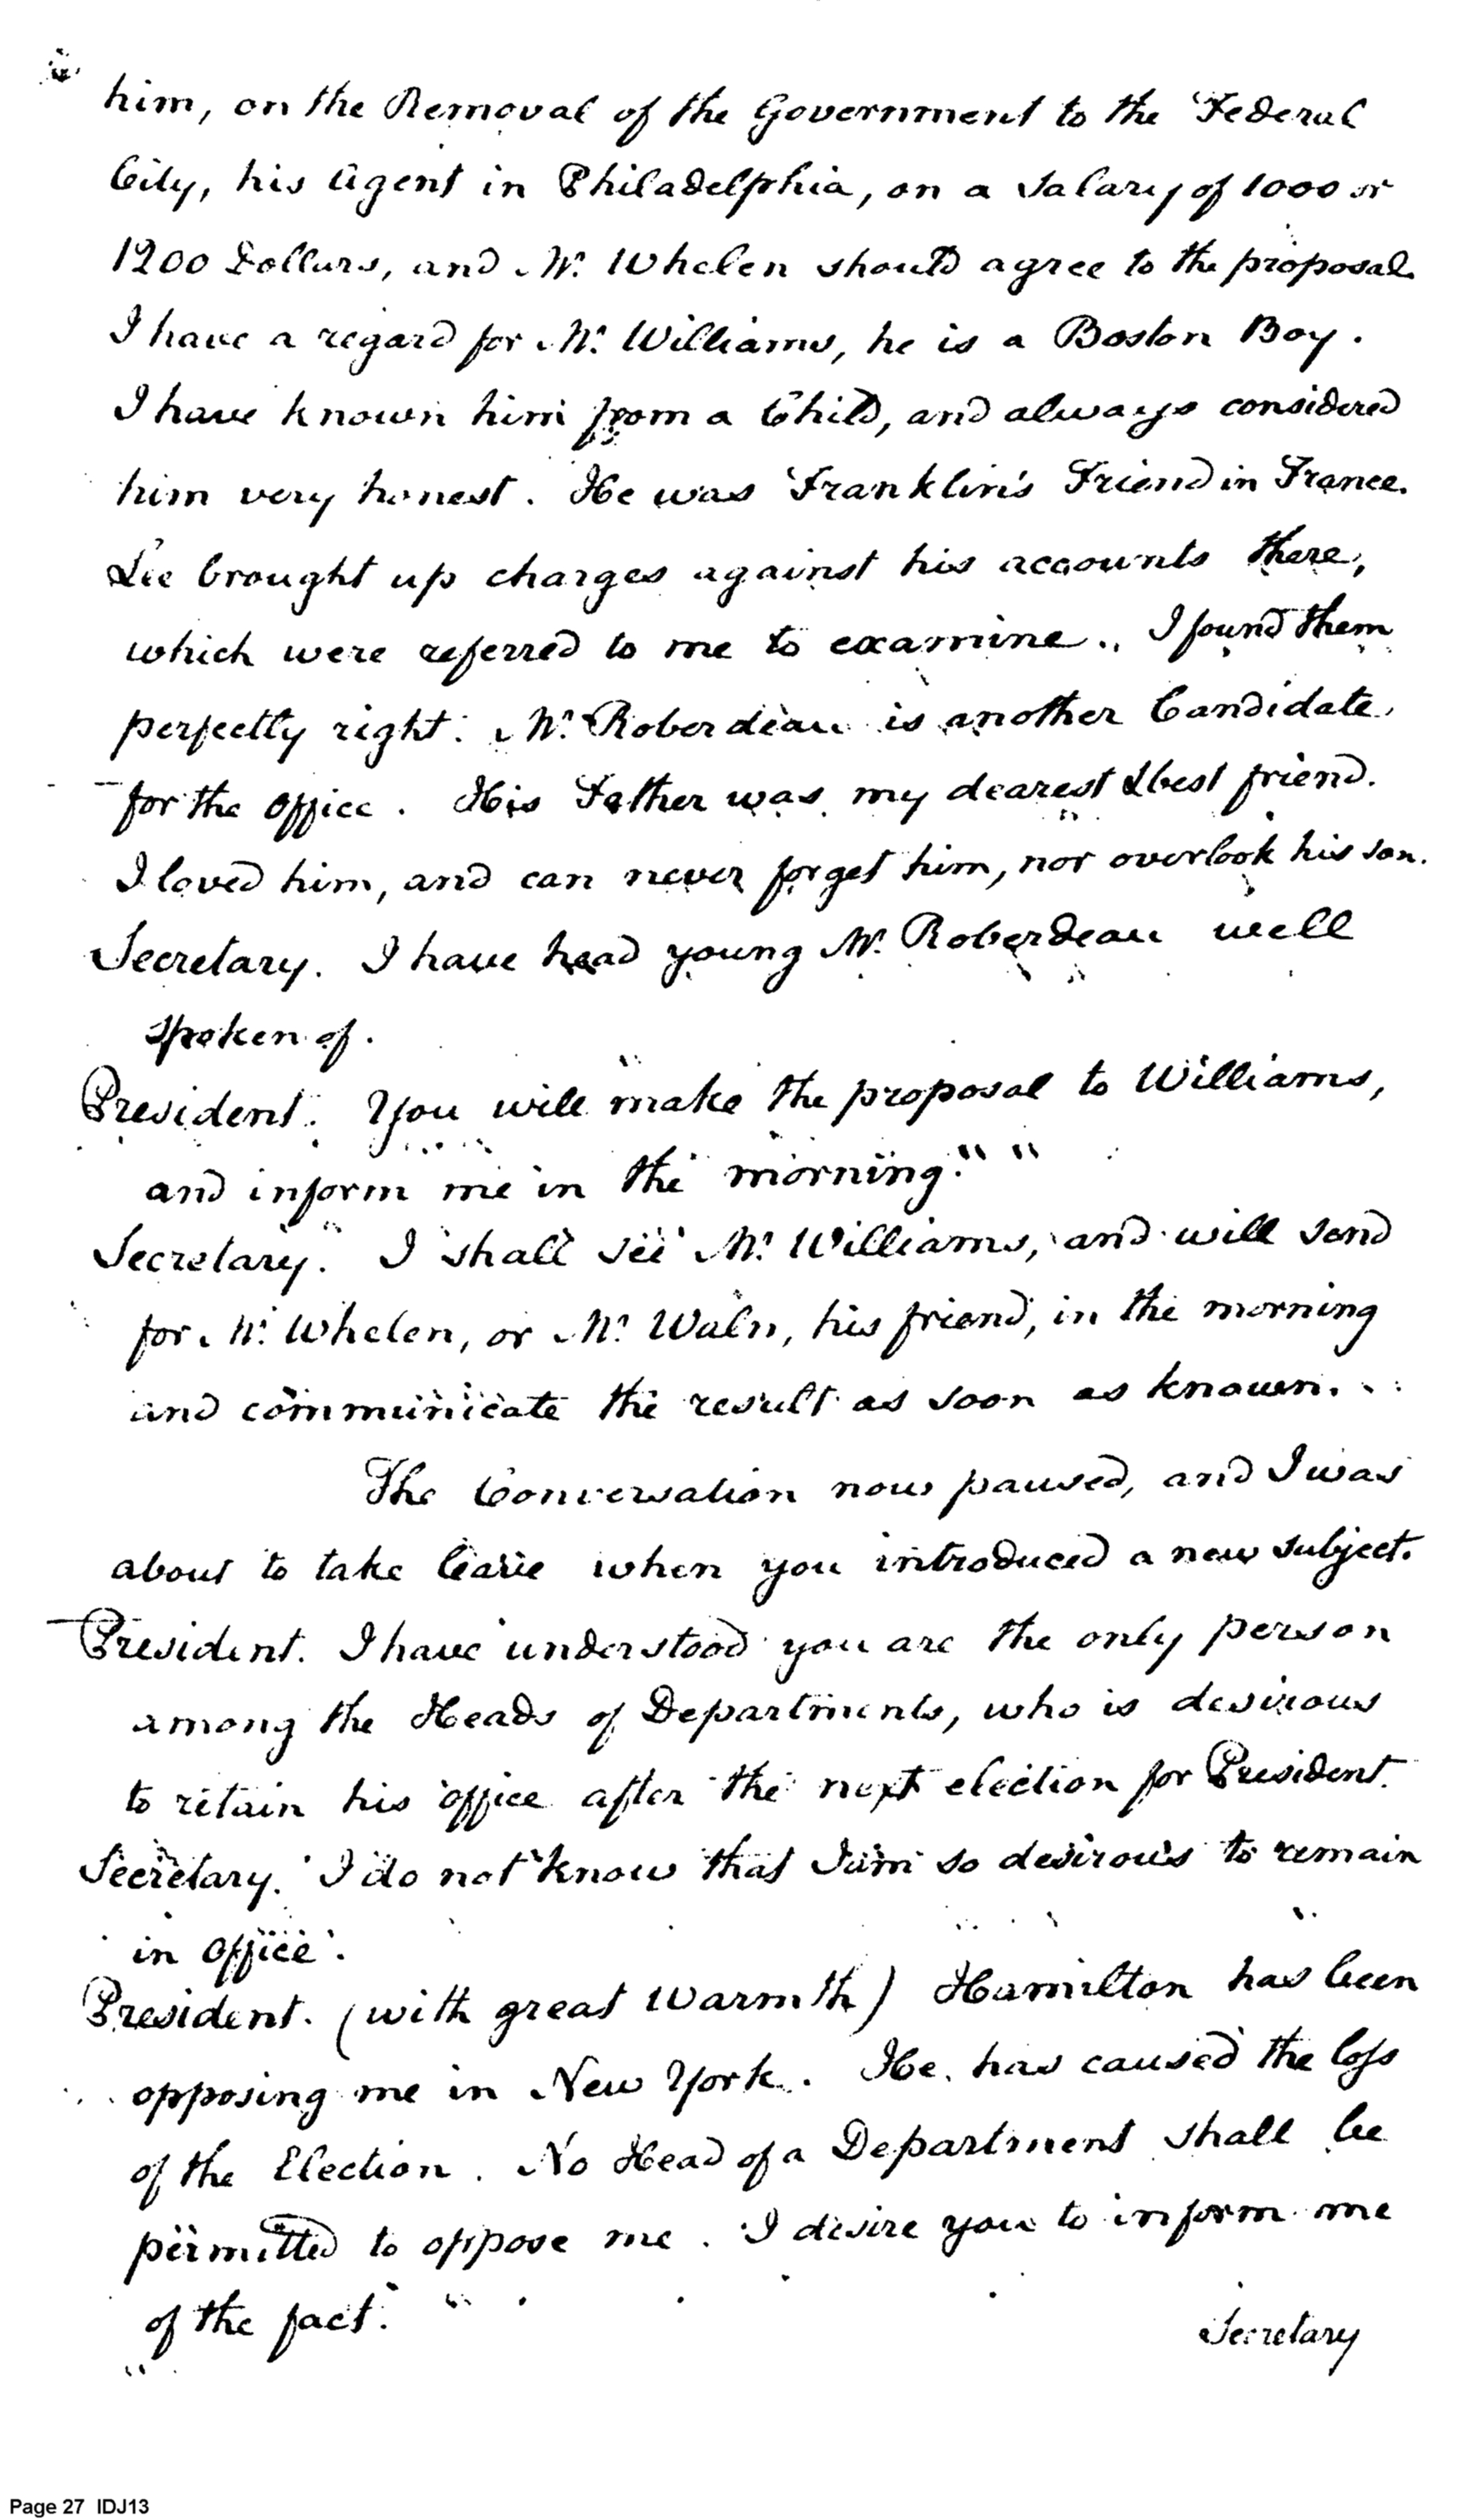 him, on the Removal of the Government to the Federal
City, his Agent in Philadelphia, on a Salary of 1000 or
1200 Dollars, and Mr. Whelen should agree to the proposal.
I have a regard for Mr. Williams, he is a Boston Boy.
I have known him from a Child, and always considered
him very honest. He was Franklin's Friend in France.
Lee brought up charges against his accounts there,
which were referred to me to examine. I found them
perfectly right. Mr. Roberdeau is another Candidate
for the office. His Father was my dearest & best friend.
I loved him, and can never forget him, nor overlook his son.
Secretary. I have head young Mr. Roberdeau well
spoken of.
President. You will make the proposal to Williams,
and inform me in the morning.
Secretary. I shall see Mr. Williams, and will send
for Mr. Whelen, or Mr. Waln, his friend, in the morning
and communicate the result as soon as known.
The Conversation now paused, and I was
about to take leave when you introduced a new subject.
President. I have understood you are the only person
among the Heads of Departments, who is desirous
to retain his office after the next election for President.
Secretary. I do not know that I am so desirous to remain
in office.
President. (with great warmth) Hamilton has been
opposing me in New York. He has caused the loss
of the Election. No Head of a Department shall be
permitted to oppose me. I desire you to inform me
of the fact.
Secretary
Page 27 IDJ13